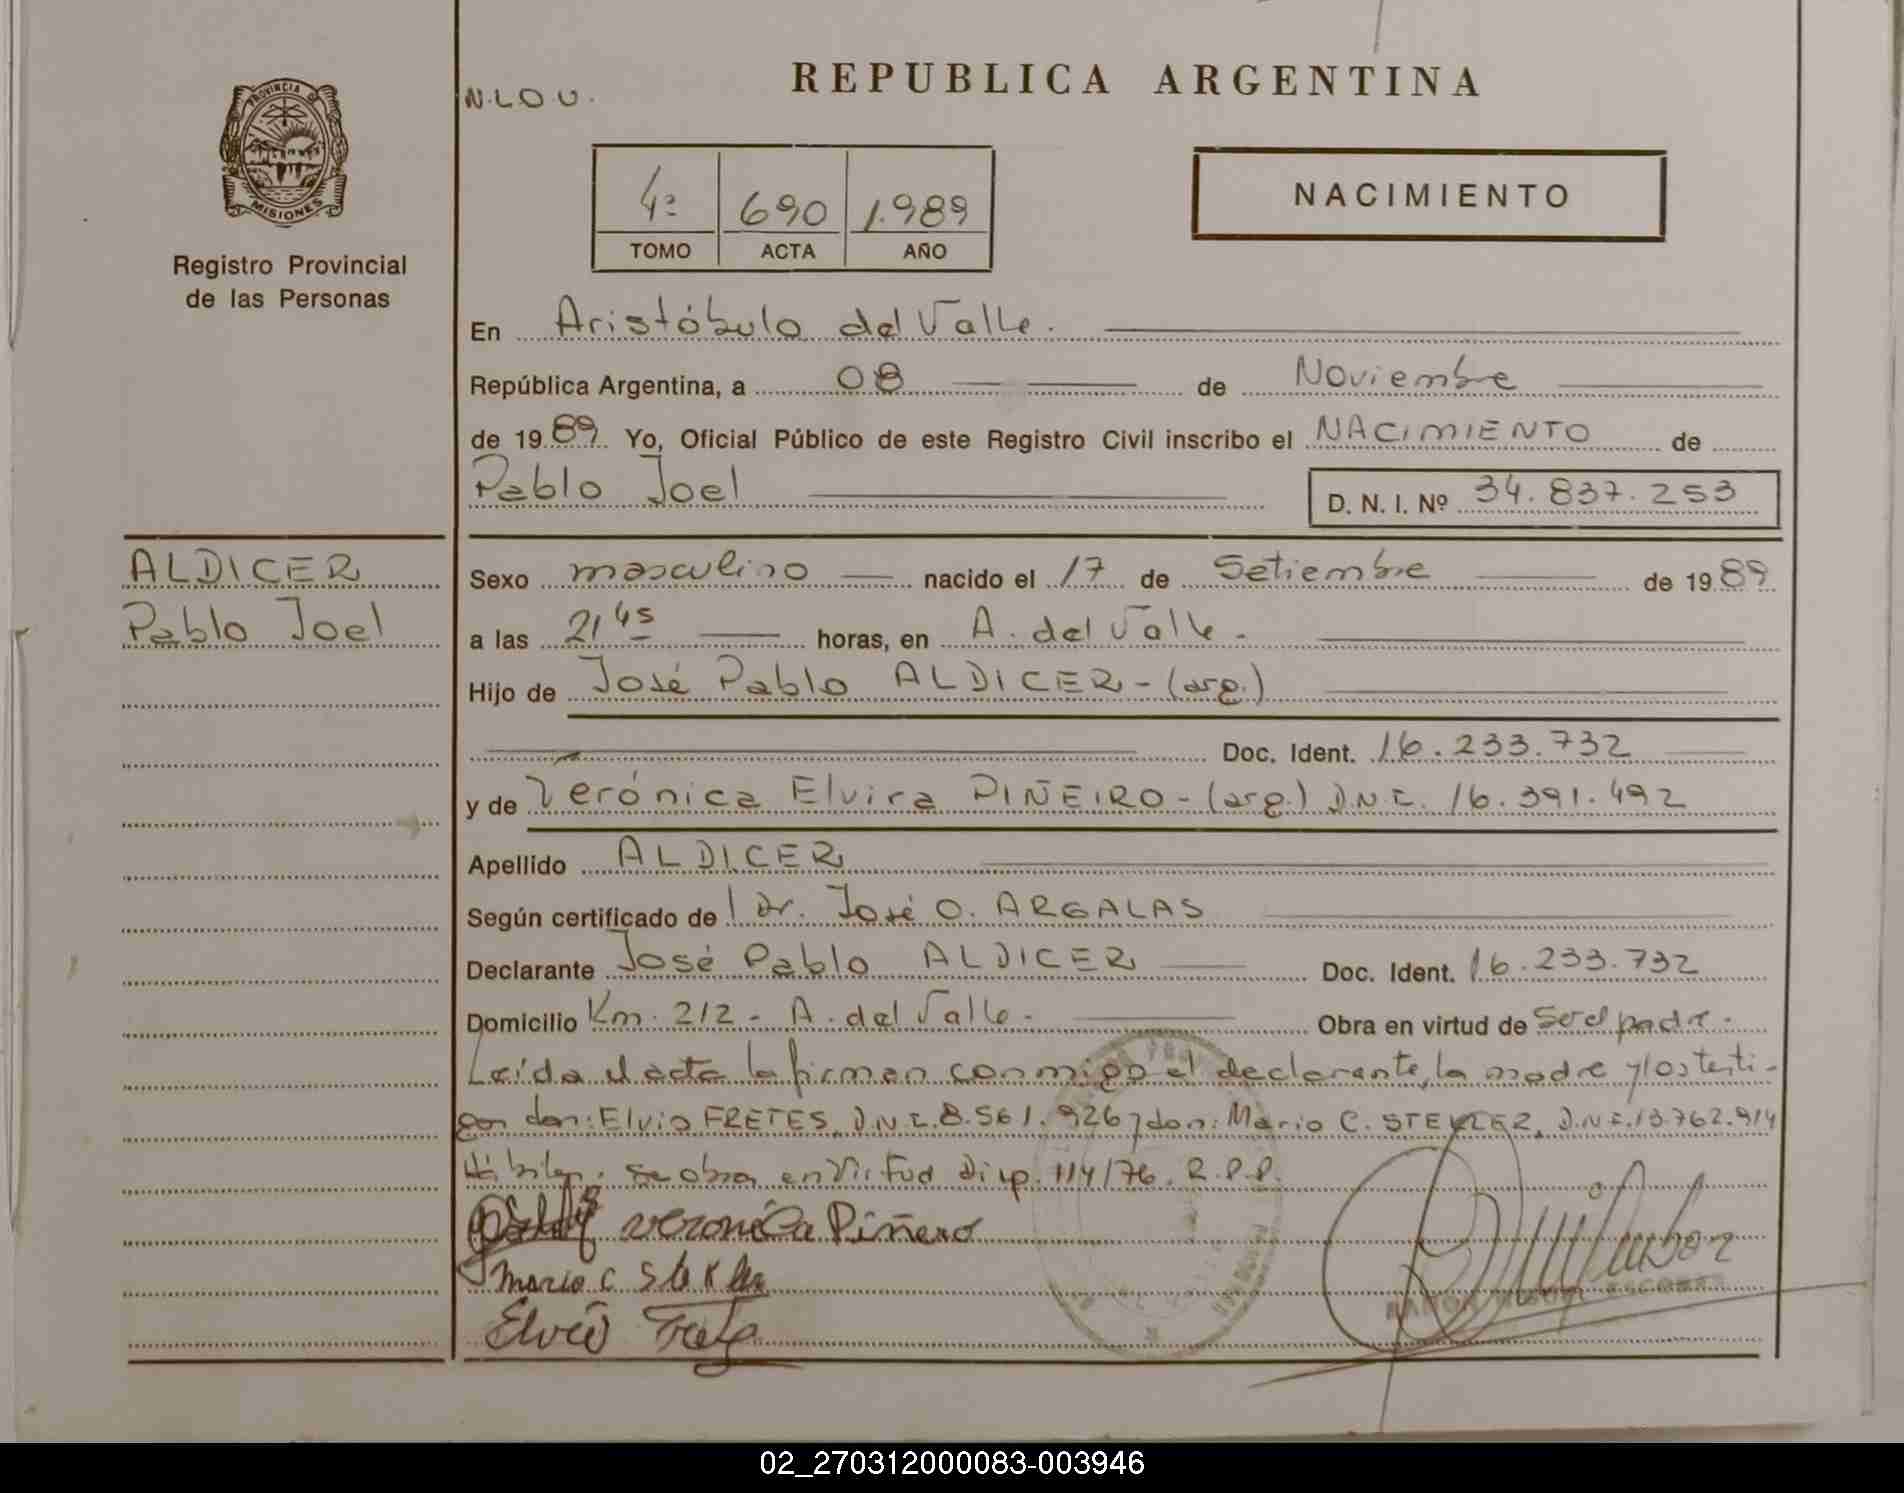 PROVINCIA D
MISIONES
Registro Provincial
de las Personas
N.L.O.U.
REPUBLICA ARGENTINA
4º 690 1.989
TOMO ACTA AÑO
NACIMIENTO
En Aristóbulo del Valle.
República Argentina, a 08 de Noviembre
de 1989 Yo, Oficial Público de este Registro Civil inscribo el NACIMIENTO de
Pablo Joel D. N. I. Nº 34.837.253
ALDICER
Pablo Joel
Sexo masculino nacido el 17 de Setiembre de 1989
a las 21 45 horas, en A. del Valle.
Hijo de José Pablo ALDICER - (arg.)
Doc. Ident. 16.233.732
y de Verónica Elvira PIÑEIRO - (arg.) D.N.I. 16.391.492
Apellido ALDICER
Según certificado de l Dr. José O. ARGALAS
Declarante José Pablo ALDICER Doc. Ident. 16.233.732
Domicilio Km. 212 - A. del Valle. Obra en virtud de ser el padre.
Leída el acta la firman conmigo el declarante, la madre y los testi-
gos don: Elvio FRETES, D.N.I. 8.561.926 y don: Mario C. D.N.I. 13.762.914
Hábiles. se obra en Virtud Disp. 114/76. R.P.P.
Veronica Piñero
Mario C
Elvio
RAMON ESCOBAR
02_270312000083-003946